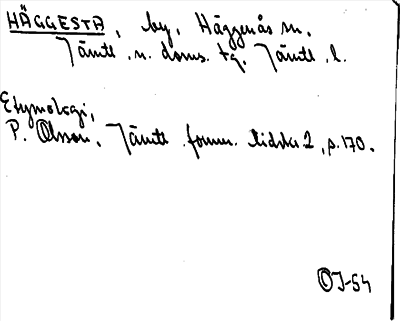 HÄGGESTA, by, Häggenås sn.
Jämtl. n. doms. tg. Jämtl. l.
Etymologi,
P. Olsson, Jämtl. fornm. tidskr 2, s. 170.
OJ-54